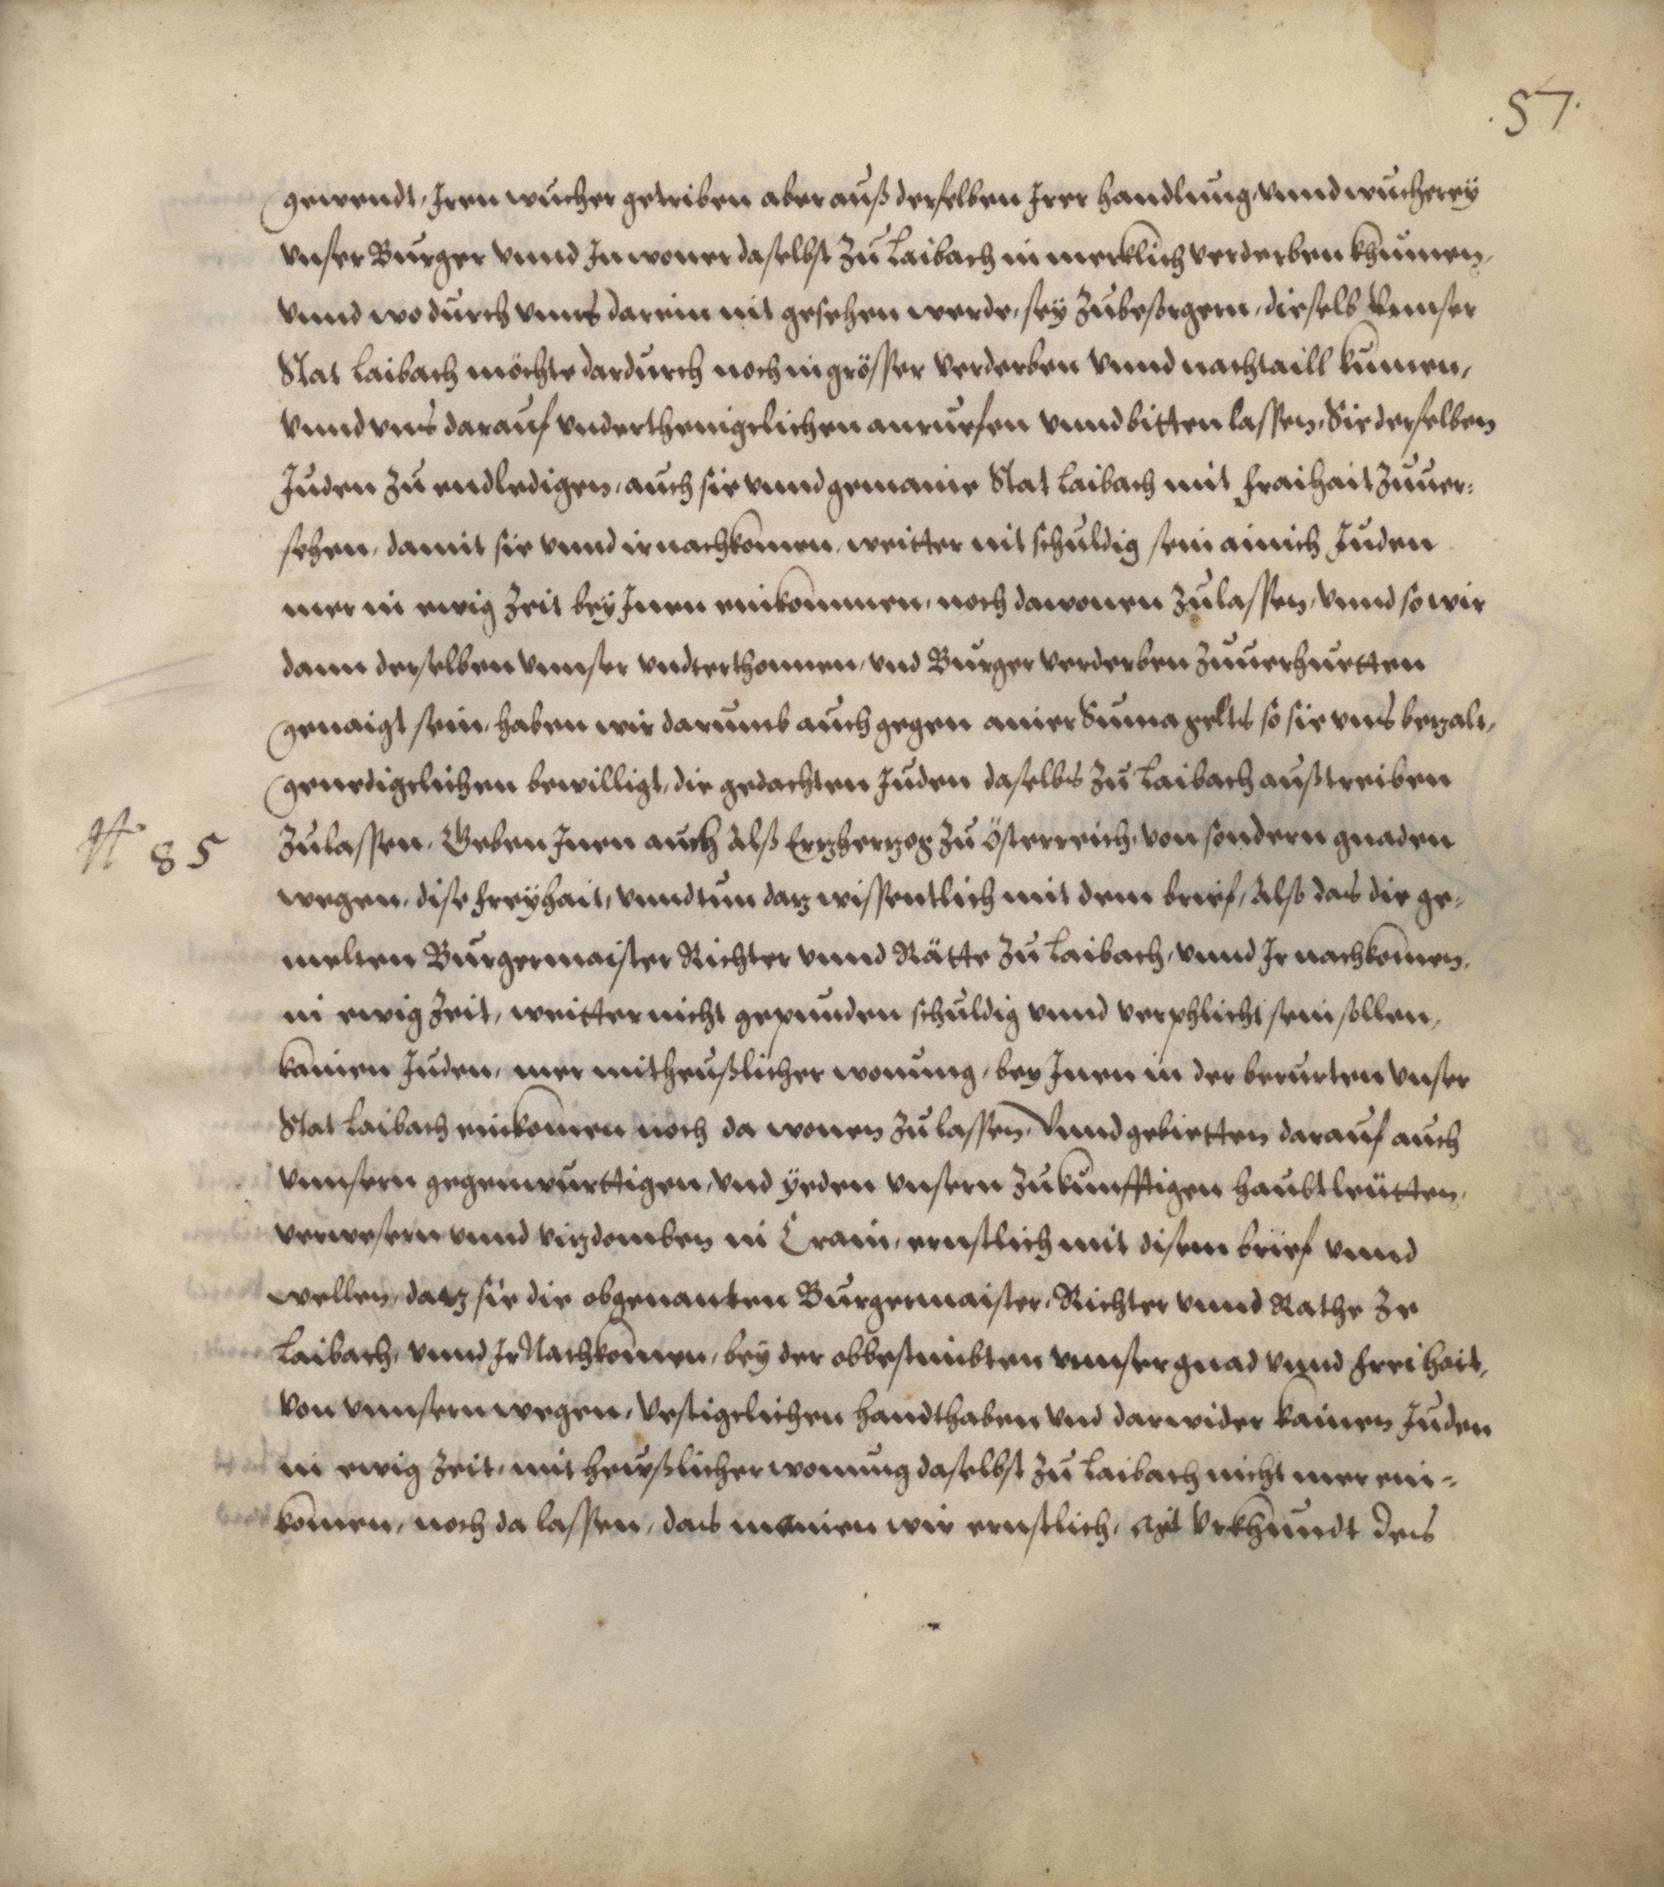 .57.
gewendt, Iren wucher getriben aber auß derselben Irer handlung, vnnd wucherey
vnser Burger vnnd Inwoner daselbst zu Laibach in merklich verderben khumen,
vnnd wo durch vnns darein nit gesehen werde, sey zubesorgern, dieselb Vnnser
Stat Laibach möchte dardurch noch in grösser verderben vnnd nachtaill kumen,
vnnd vns darauf vnderthenigclichen anruefen vnnd bitten lassen, Sie derselben
Juden zu endledigen, auch sie vnnd gemaine Stat Laibach mit fraihait zuuer=
sehen, damit sie vnnd ir nachkomen, weitter nit schuldig sein ainich Juden
mer in ewig zeit bey Inen einkommen, noch da wonen zulassen, vnnd so wir
dann derselben vnnser vndterthonnen, vnd Burger verderben zuuerhuetten
genaigt sein, haben wir darumb auch gegen ainer Suma gelts so sie vns bezalt,
genedigclichen bewilligt, die gedachten Juden daselbs zu Laibach außtreiben
N° 85
zulassen. Geben Inen auch Alß Erzherzog zu Österreich, von sondern gnaden
wegen, dise freyhait, vnnd tun daz wissentlich mit dem brief, Also das die ge=
melten Burgermaister Richter vnnd Rätte zu Laibach, vnnd Ir nachkomen,
in ewig zeit, weitter nicht gepunden schuldig vnnd verphlicht sein sollen,
kainen Juden, mer mit heußlicher wonung, bey Inen in der berurten vnser
Stat Laibach einkomen noch da wonen zu lassen, Vnnd gebietten darauf auch
vnnsern gegenwurttigen, vnd yeden vnsern zukunfftigen haubtleütten,
verwesern vnnd vizdomben in Crain, ernstlich mit disem brief vnnd
wellen, daz sie die obgenanten Burgermaister, Richter vnnd Rathe ze
Laibach, vnnd Ir Nachkomen, bey der obbestimbten vnnser gnad vnnd freihait,
von vnnsern wegen, Vestigclichen handthaben vnd darwider kainen Juden
in ewig zeit, mit heußlicher wonung daselbst zu Laibach nicht mer ein=
komen, noch da lassen, das mainen wir ernstlich, mit Vrkhundt des